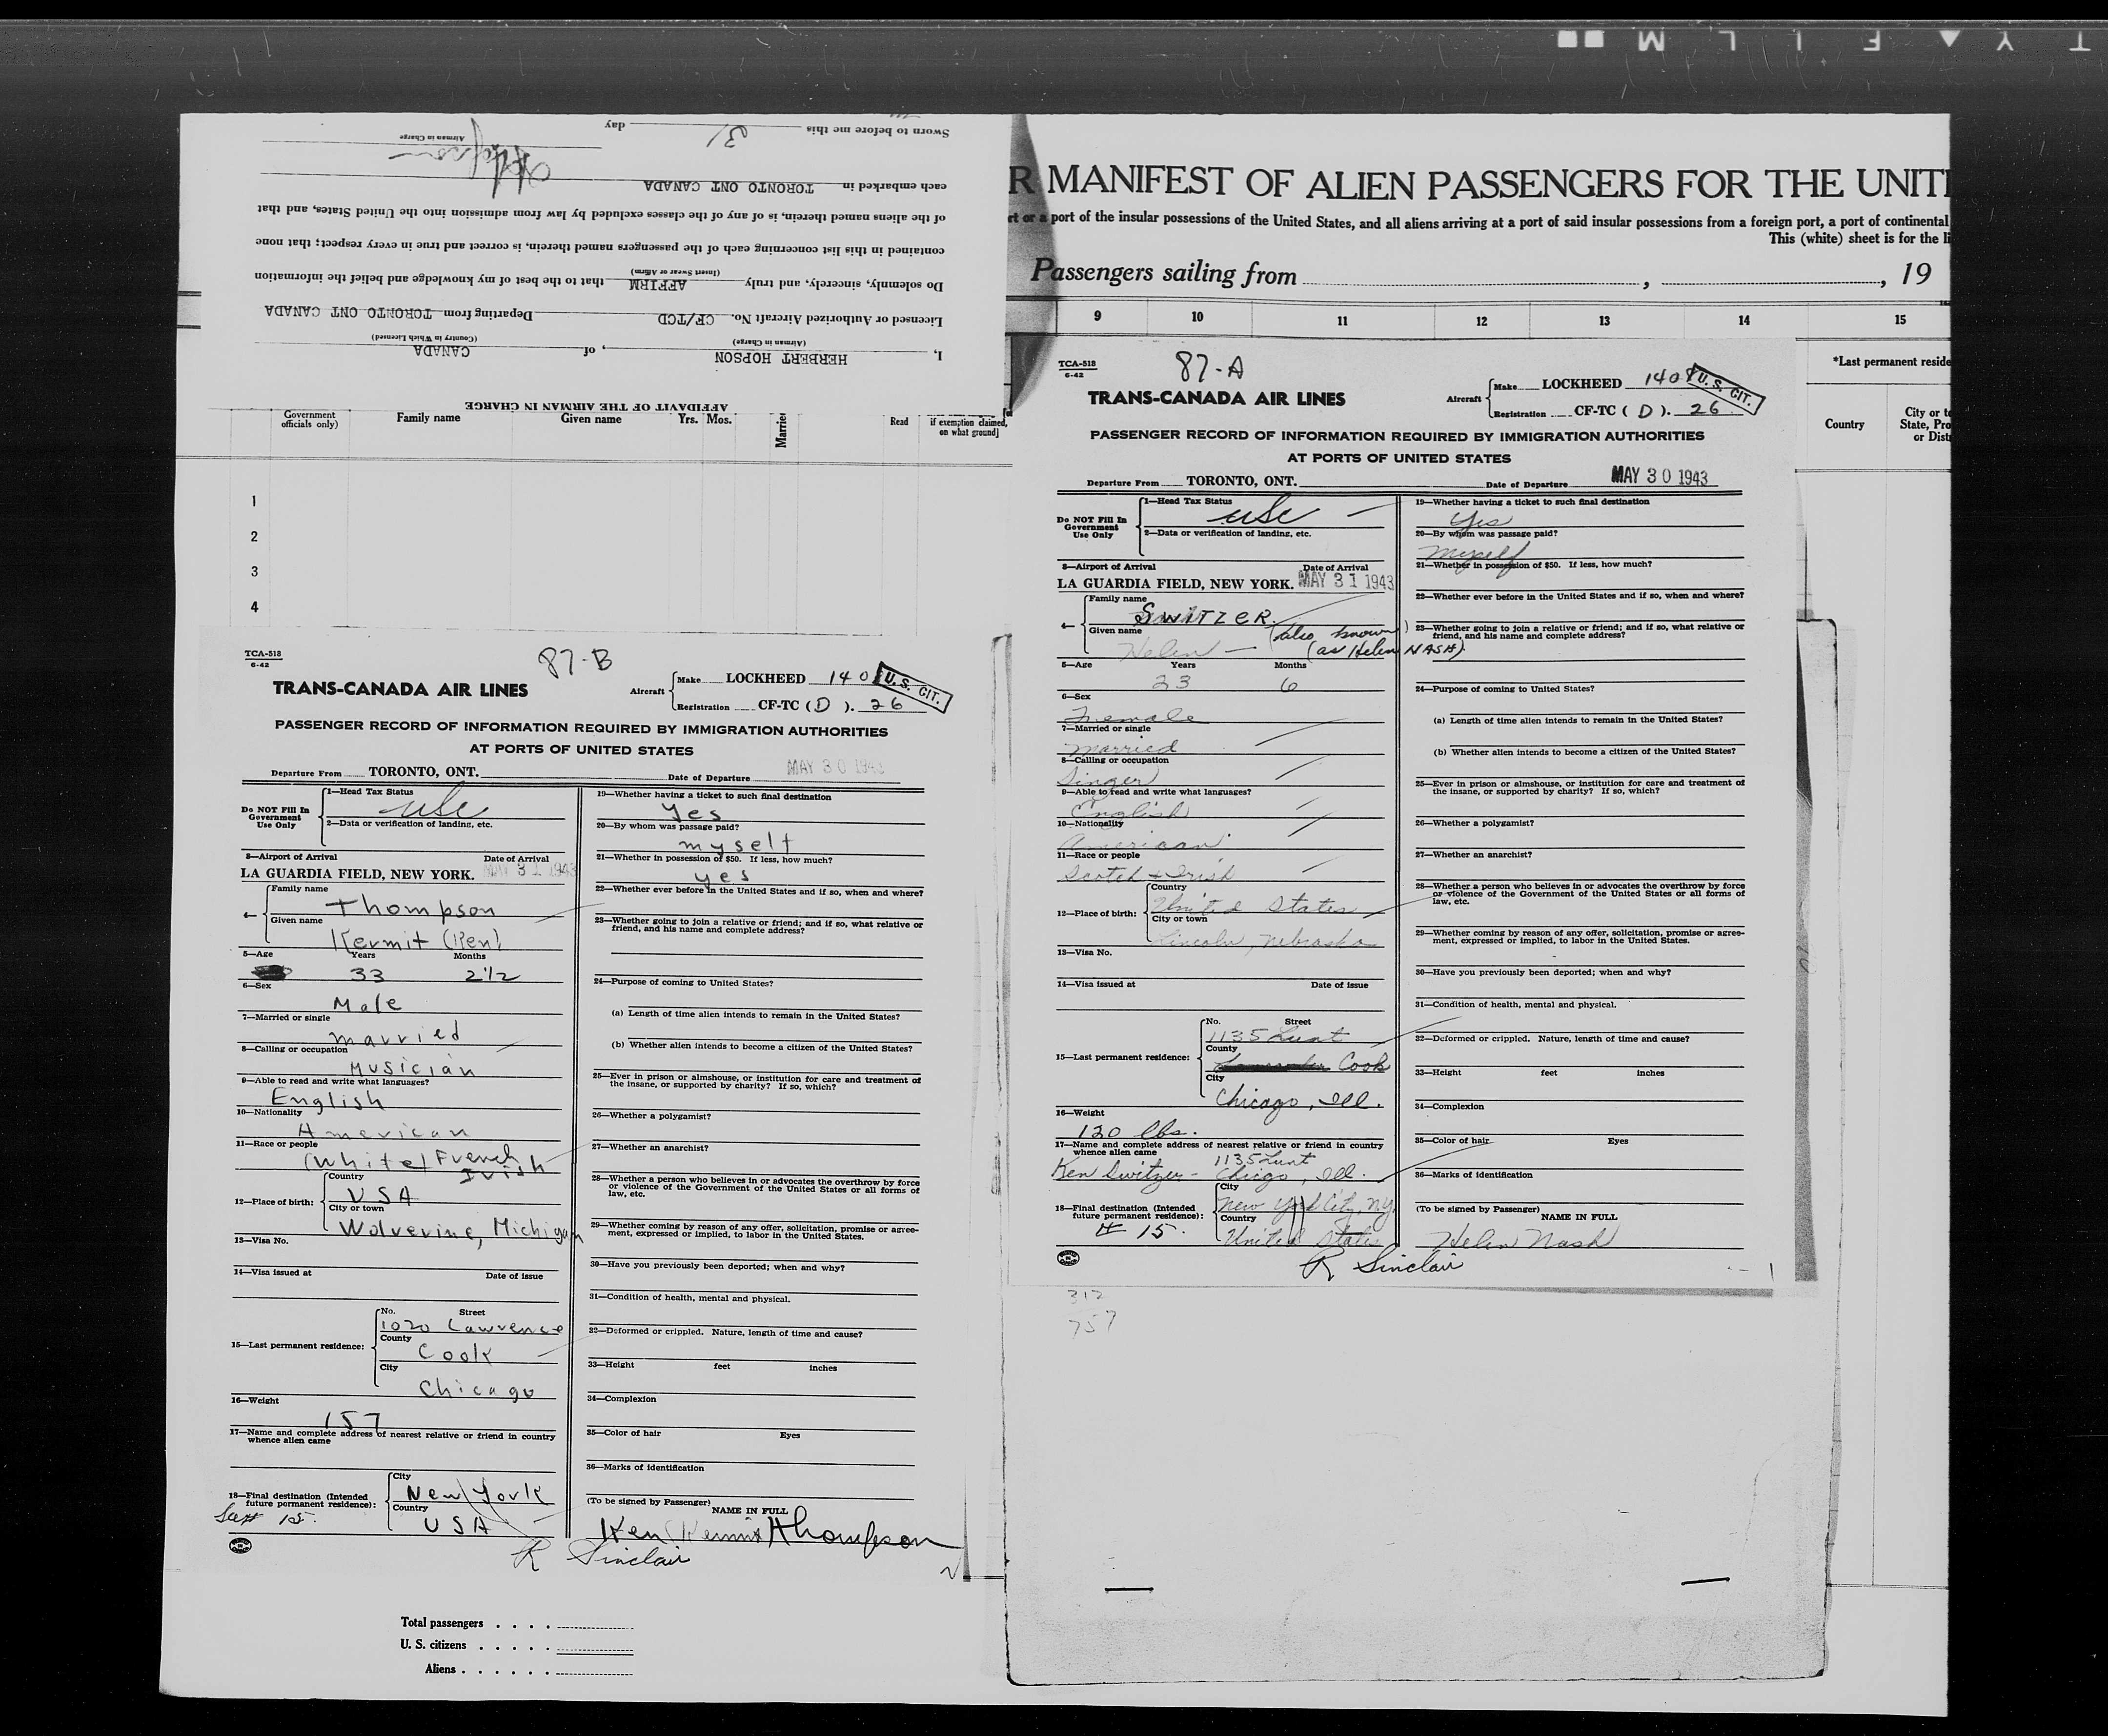 SAFETY FILM
Sworn to before me this 31 day
Airman in Charge
each embarked in TORONTO ONT CANADA
of the aliens named therein, is of any of the classes excluded by law from admission into the United States, and that
contained in this list concerning each of the passengers named therein, is correct and true in every respect; that none
(Insert Swear or Affirm)
Do solemnly, sincerely, and truly AFFIRM that to the best of my knowledge and belief the information
Licensed or Authorized Aircraft No. CF/TCD Departing from TORONTO ONT CANADA
(Airman in Charge) (Country in Which Licensed)
I, HERBERT HOPSON, of CANADA
AFFIDAVIT OF THE AIRMAN IN CHARGE
Government officials only) Family name Given name Yrs. Mos. Married Read if exemption claimed, on what ground]
1
2
3
4
TCA-518
6-42
87-B
TRANS-CANADA AIR LINES
Aircraft
Make LOCKHEED 140
U. S. CIT.
Registration CF-TC (D). 26
PASSENGER RECORD OF INFORMATION REQUIRED BY IMMIGRATION AUTHORITIES
AT PORTS OF UNITED STATES
Departure From TORONTO, ONT. Date of Departure MAY 30 1943
Do NOT Fill In Government Use Only
1—Head Tax Status
USC
2—Data or verification of landing, etc.
3—Airport of Arrival Date of Arrival
LA GUARDIA FIELD, NEW YORK. MAY 31 1943
4—
Family name
Thompson
Given name
Kermit (Ken)
5—Age Years Months
33 2 1/2
6—Sex
Male
7—Married or single
married
8—Calling or occupation
Musician
9—Able to read and write what languages?
English
10—Nationality
American
11—Race or people
(White) French
Irish
12—Place of birth:
Country
USA
City or town
Wolverine, Michigan
13—Visa No.
14—Visa issued at Date of issue
15—Last permanent residence:
No. Street
1020 Lawrence
County
Cook
City
Chicago
16—Weight
157
17—Name and complete address of nearest relative or friend in country
whence alien came
18—Final destination (Intended
future permanent residence):
City
New York
Country
USA
15.
19—Whether having a ticket to such final destination
Yes
20—By whom was passage paid?
myself
21—Whether in possession of $50. If less, how much?
yes
22—Whether ever before in the United States and if so, when and where?
23—Whether going to join a relative or friend; and if so, what relative or
friend, and his name and complete address?
24—Purpose of coming to United States?
(a) Length of time alien intends to remain in the United States?
(b) Whether alien intends to become a citizen of the United States?
25—Ever in prison or almshouse, or institution for care and treatment of
the insane, or supported by charity? If so, which?
26—Whether a polygamist?
27—Whether an anarchist?
28—Whether a person who believes in or advocates the overthrow by force
or violence of the Government of the United States or all forms of
law, etc.
29—Whether coming by reason of any offer, solicitation, promise or agree-
ment, expressed or implied, to labor in the United States.
30—Have you previously been deported; when and why?
31—Condition of health, mental and physical.
32—Deformed or crippled. Nature, length of time and cause?
33—Height feet inches
34—Complexion
35—Color of hair Eyes
36—Marks of identification
(To be signed by Passenger)
NAME IN FULL
Ken (Kermit) Thompson
R Sinclair
Total passengers
U. S. citizens
Aliens
R MANIFEST OF ALIEN PASSENGERS FOR THE UNIT
rt or a port of the insular possessions of the United States, and all aliens arriving at a port of said insular possessions from a foreign port, a port of continental
This (white) sheet is for the li
Passengers sailing from , , 19
9 10 11 12 13 14 15
*Last permanent reside
Country
City or to
State, Pro
or Dist
TCA-518
6-42
87-A
TRANS-CANADA AIR LINES
Aircraft
Make LOCKHEED 1408
U. S. CIT.
Registration CF-TC (D). 26
PASSENGER RECORD OF INFORMATION REQUIRED BY IMMIGRATION AUTHORITIES
AT PORTS OF UNITED STATES
Departure From TORONTO, ONT. Date of Departure MAY 30 1943
Do NOT Fill In Government Use Only
1—Head Tax Status
USC
2—Data or verification of landing, etc.
3—Airport of Arrival Date of Arrival
LA GUARDIA FIELD, NEW YORK. MAY 31 1943
4—
Family name
SWITZER
Given name
Helen
(also known)
(as Helen NASH)
5—Age Years Months
23 6
6—Sex
Female
7—Married or single
married
8—Calling or occupation
Singer
9—Able to read and write what languages?
English
10—Nationality
American
11—Race or people
Scotch + Irish
12—Place of birth:
Country
United States
City or town
Lincoln, Nebraska
13—Visa No.
14—Visa issued at Date of issue
15—Last permanent residence:
No. Street
1135 Lunt
County
Cook
City
Chicago, Ill.
16—Weight
120 lbs.
17—Name and complete address of nearest relative or friend in country
whence alien came
Ken Switzer - 1135 Lunt
Chicgo, Ill.
18—Final destination (Intended
future permanent residence):
City
New York City, N.Y.
Country
United States
# 15.
19—Whether having a ticket to such final destination
Yes
20—By whom was passage paid?
Myself
21—Whether in possession of $50. If less, how much?
22—Whether ever before in the United States and if so, when and where?
23—Whether going to join a relative or friend; and if so, what relative or
friend, and his name and complete address?
24—Purpose of coming to United States?
(a) Length of time alien intends to remain in the United States?
(b) Whether alien intends to become a citizen of the United States?
25—Ever in prison or almshouse, or institution for care and treatment of
the insane, or supported by charity? If so, which?
26—Whether a polygamist?
27—Whether an anarchist?
28—Whether a person who believes in or advocates the overthrow by force
or violence of the Government of the United States or all forms of
law, etc.
29—Whether coming by reason of any offer, solicitation, promise or agree-
ment, expressed or implied, to labor in the United States.
30—Have you previously been deported; when and why?
31—Condition of health, mental and physical.
32—Deformed or crippled. Nature, length of time and cause?
33—Height feet inches
34—Complexion
35—Color of hair Eyes
36—Marks of identification
(To be signed by Passenger)
NAME IN FULL
Helen Nash
R Sinclair
312
757